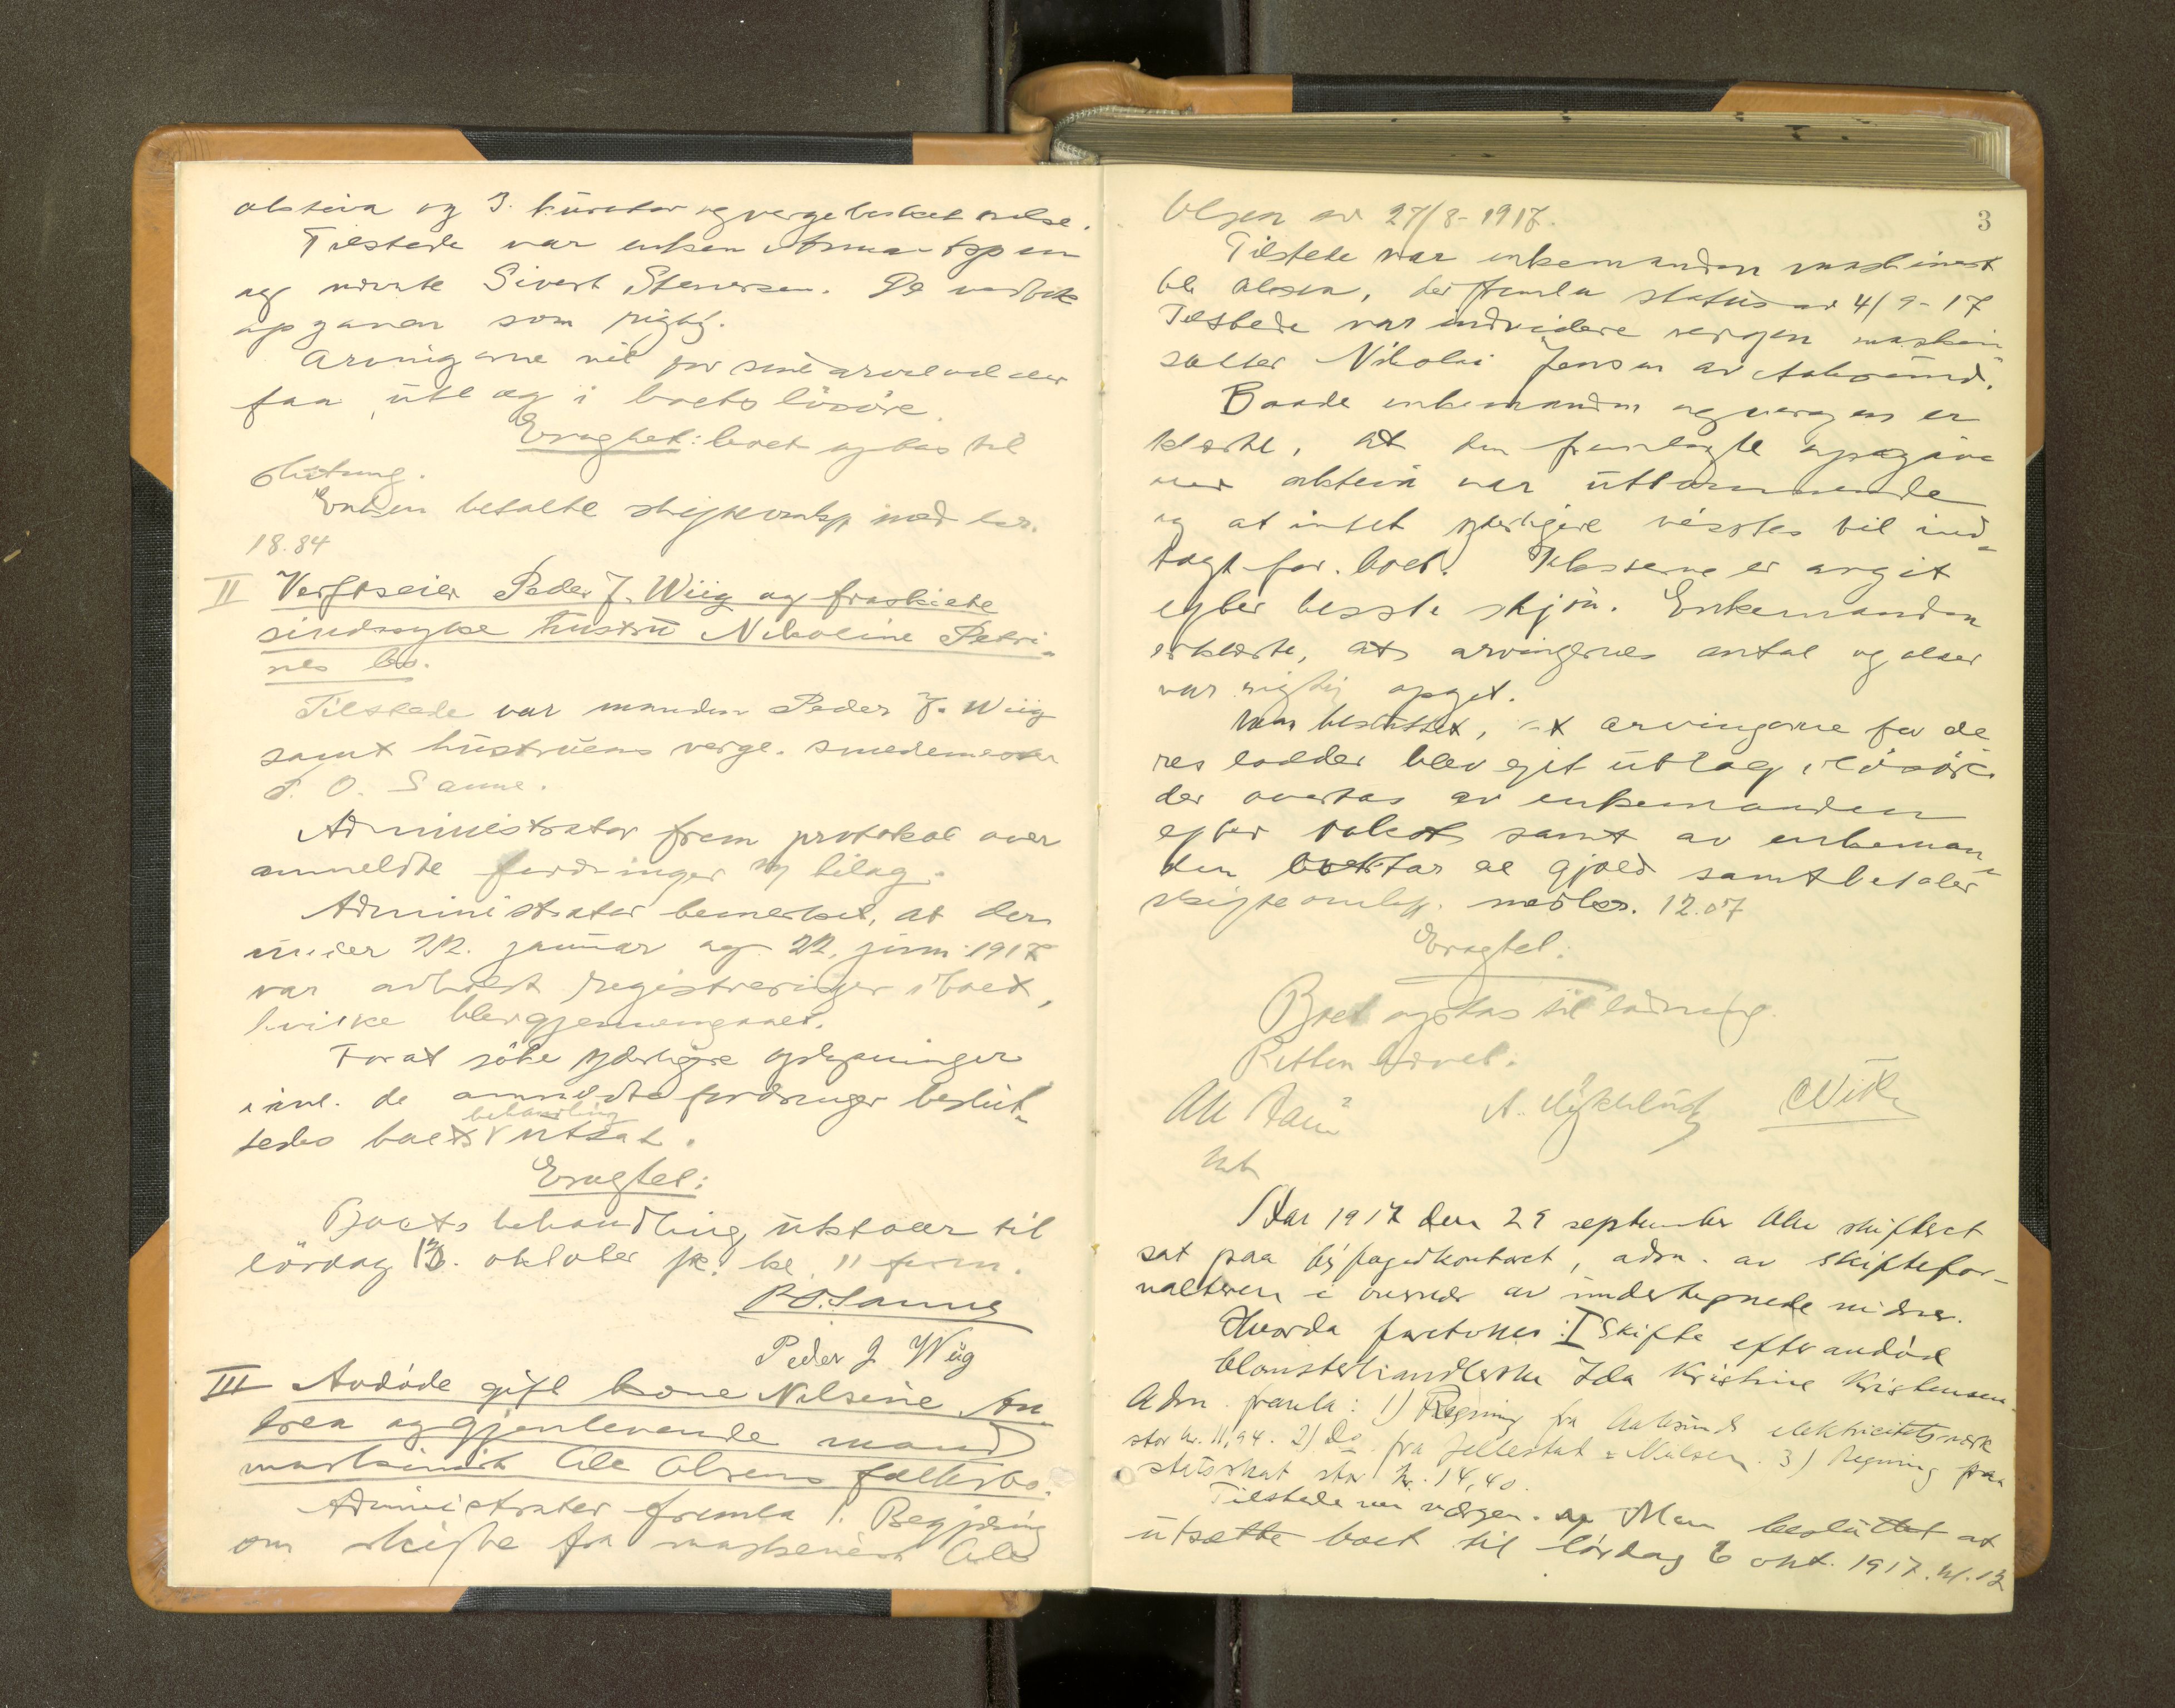 aktiva og 3. kurator og vergebeskikkelse.
Tilstede var enken Anna
og Sivert Stenersen. De vedtok
opgaven som rigtig.
Arvingerne vil for sine arvelodder
faa utlæg i boets lösöre.
Eragtet: boet optas til
slutning.
Enken betalte skifteomkp med kr.
18.84
II Verftseier Peder J. Wiig og fraskilte
sindssyke hustru Nikoline Petri-
nes bo.
Tilstede var manden Peder J. Wiig
samt hustruens verge. smedemester
P. O. Sanne.
Administrator frem protokol over
anmeldte fordringer m/ bilag.
Administrator bemerket, at der
under 22. januar og 22. juni 1917
var avholdt registreringer i boet,
hvilke blev gjennemgaaet.
For at söke yderligere oplysninger
i anl. de anmeldte fordringer beslut-
tedes boets behandling utsat.
Eragtet:
Boets behandling utstaar til
lördag 13. oktober kl. 11 form.
P O. Sanne
Peder J. Wiig
III Avdöde gift kone Nilsine An-
drea og gjenlevende mand
maskinist Ole Olsens fællesbo.
Administrator fremla 1. Begjæring
om skifte fra maskinist Ole
3
Olsen av 27/8-1917.
Tilstede var enkemanden maskinist
Ole Olsen, der fremla status av 4/9-17
Tilstede var endvidere vergen maskin-
sætter Nikolai Jensen av Aalesund.
Baade enkemanden og vergen er
klærte, at den fremlagte opgave
over aktiva var uttömmende
og at intet yderligere vistes til ind-
tægt for boet. Klasserne er angit
efter beste skjön. Enkemanden
erklærte, at arvingernes antal og alder
var rigtig opgit.
Man besluttet, at arvingerne for de
res lodder blev git utlæg i lösöre
der overtas av enkemanden
efter takst samt av enkeman-
den overtar al gjæld samt betaler
skifteomkp. med kr. 12.07
Eragtet:
Boet optas til lodning.
Retten hævet.
Aar 1917 den 29 september blev skifteret
sat paa byfogedkontoret, adm. av skiftefor-
valteren i overvær av undertegnede vidner.
Hvorda foretokes: I Skifte efter avdöde
blomsterhandlerske Ida Kristine Kristensen.
Adm. fremla: 1) Regning fra Aalesunds elektricitetsverk
stor kr. 11,94. 2) Do fra Jellestad & Nielsen. 3) Regning paa
skat stor kr. 14,40.
Tilstede var vergen. Man besluttet at
utsætte boet til lördag 6 okt. 1917. kl. 12